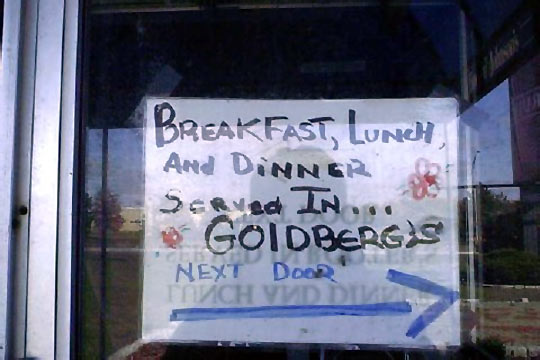 BREAKFAST, LUNCH,
And DINNER
Served In...
GOLDBERG'S
NEXT DOOR